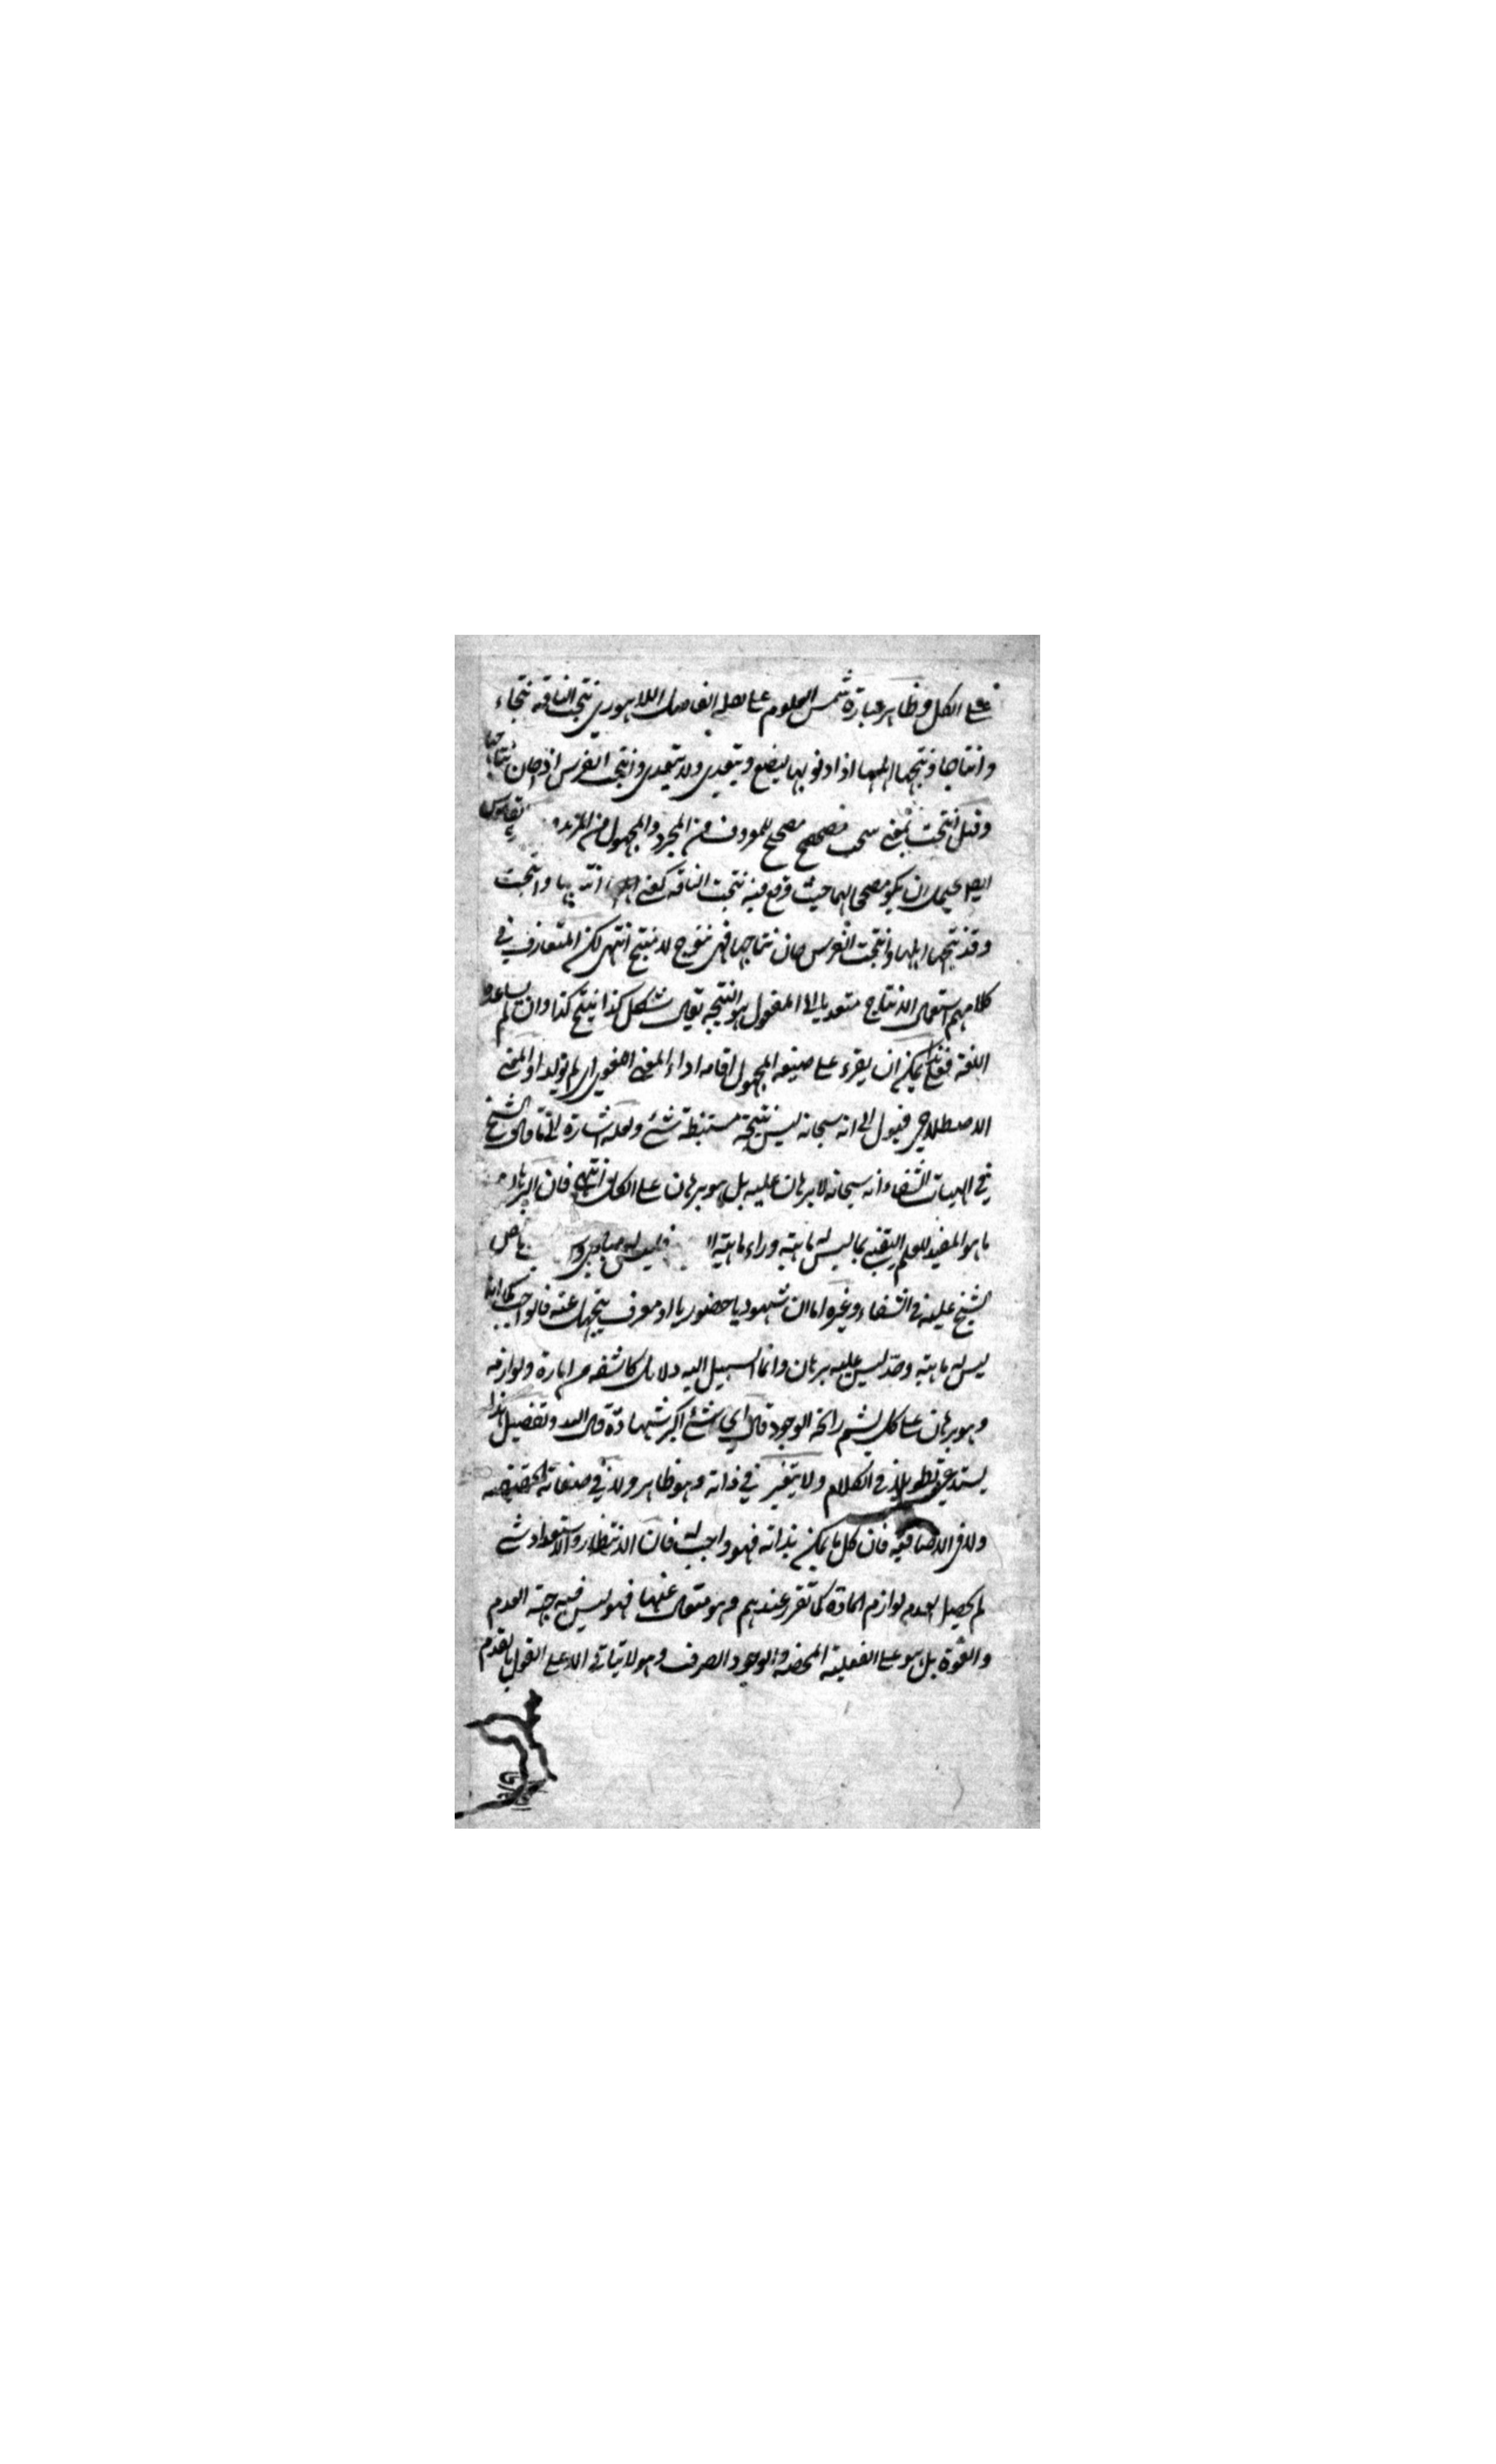 على الكل وظاهر عبارة شمس العلوم على الفاضل اللاهوري نتجت الناقة نتجاء
وانتاجا ونتجها اهلها اذا دنو بها ليضع ويتعدى ولا يتعدى وانتجت الفرس اذ حان نتاجها
وقيل انتجت بمعنى مصحح للمعروف من المجرد والمجهول من المزيد
ايضا يحتمل ان يكون حيث وقع فيه نتجت الناقة كعنى وانتجت
وقد نتجها اهلها وانتجت الفرس حان نتاجها فهي نتوج لا منتج انتهى لكن المتعارف في
كلامهم استعمال الانتاج متعديا الى المفعول هو النتيجة يقال شكل كذا ينتج كذا وان لم يساعده
اللغة فعلى هذا يمكن ان يقرء على صيغة المجهول اقامه اداء المعنى اللغوي اي لم يولد او المعنى
الاصطلاحي فيول الى انه سبحانه ليس نتيجة مستنبطة شئ ولعله اشارة الى ما قال الشيخ
في الهيات الشفاء انه سبحانه لا برهان عليه بل هو برهان على الكل انتهى فان البرهان
ما هو المفيد للعلم اليقيني بما ليس له ماهية وراء ماهية فليس له مبادي
الشيخ عليه في الشفاء وغيره اما ان شهوديا حضوريا او معرف يتجهل عنه فالواجب كما انه
ليس له ماهية وحد ليس عليه برهان وانما السبيل اليه دلايل كاشفه من اماره ولوازمه
وهو برهان على كل يشم رائحة الوجود قال اي شئ اكبر شهادة قل الله وتفصيل هذا
يستدعي تطويلا في الكلام ولا يتغير في ذاته وهو ظاهر ولا في صفاته الحقيقيه
ولا في الاضافيه فان كل ما يمكن بذاته فهو واجب له فان الانتظار والاستعداد شئ
لم يحصل بعد من لوازم المادة كما تقرر عندهم وهو متعال عنها فهو ليس فيه جهة العدم
والقوة بل هو على الفعلية المحضه والوجود الصرف وهو لا يتاتى الا على القول بالقدم